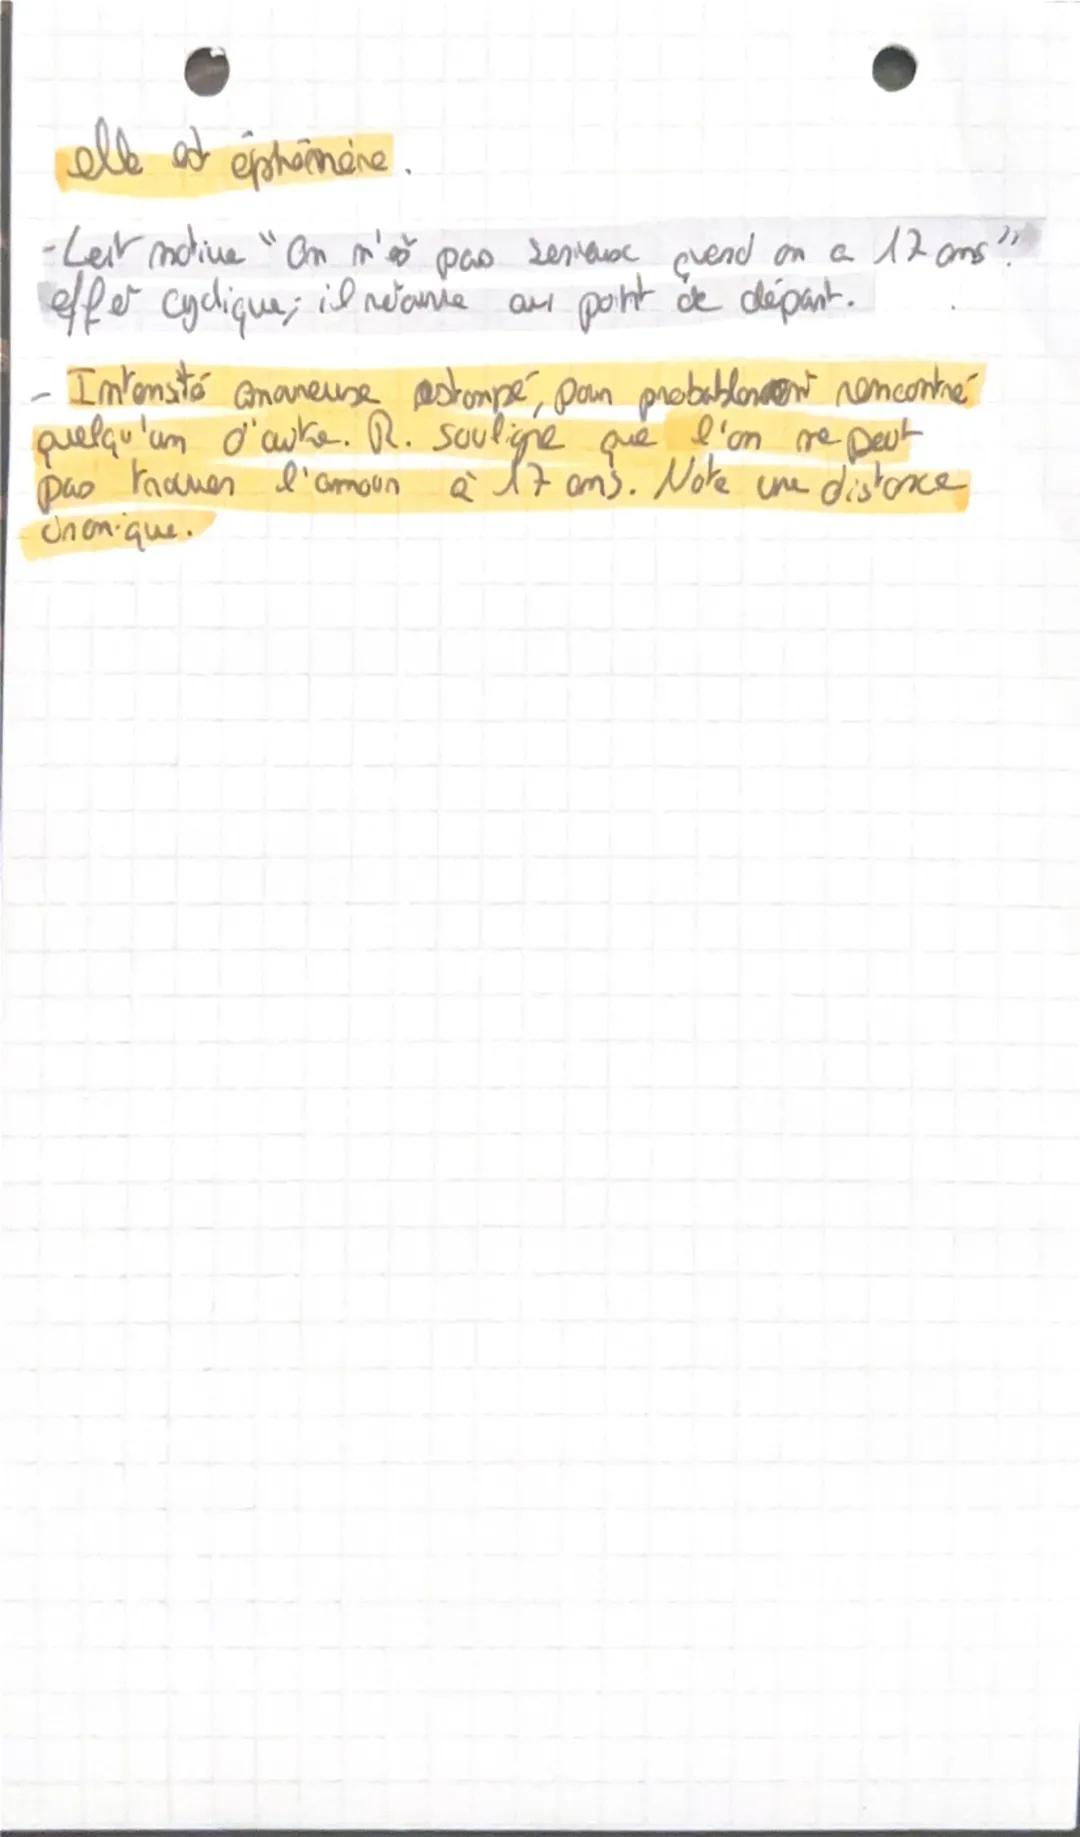 elle est éphémère.
-Leit motive "On n'est pas serieux quend on a 17 ans".
effet cyclique; il retourne au point de départ.
- Intensité amoureuse estompé, pour probablement rencontré
quelqu'un d'autre. R. souligne que l'on ne peut
pas trouver l'amour à 17 ans. Note une distance
ironique.